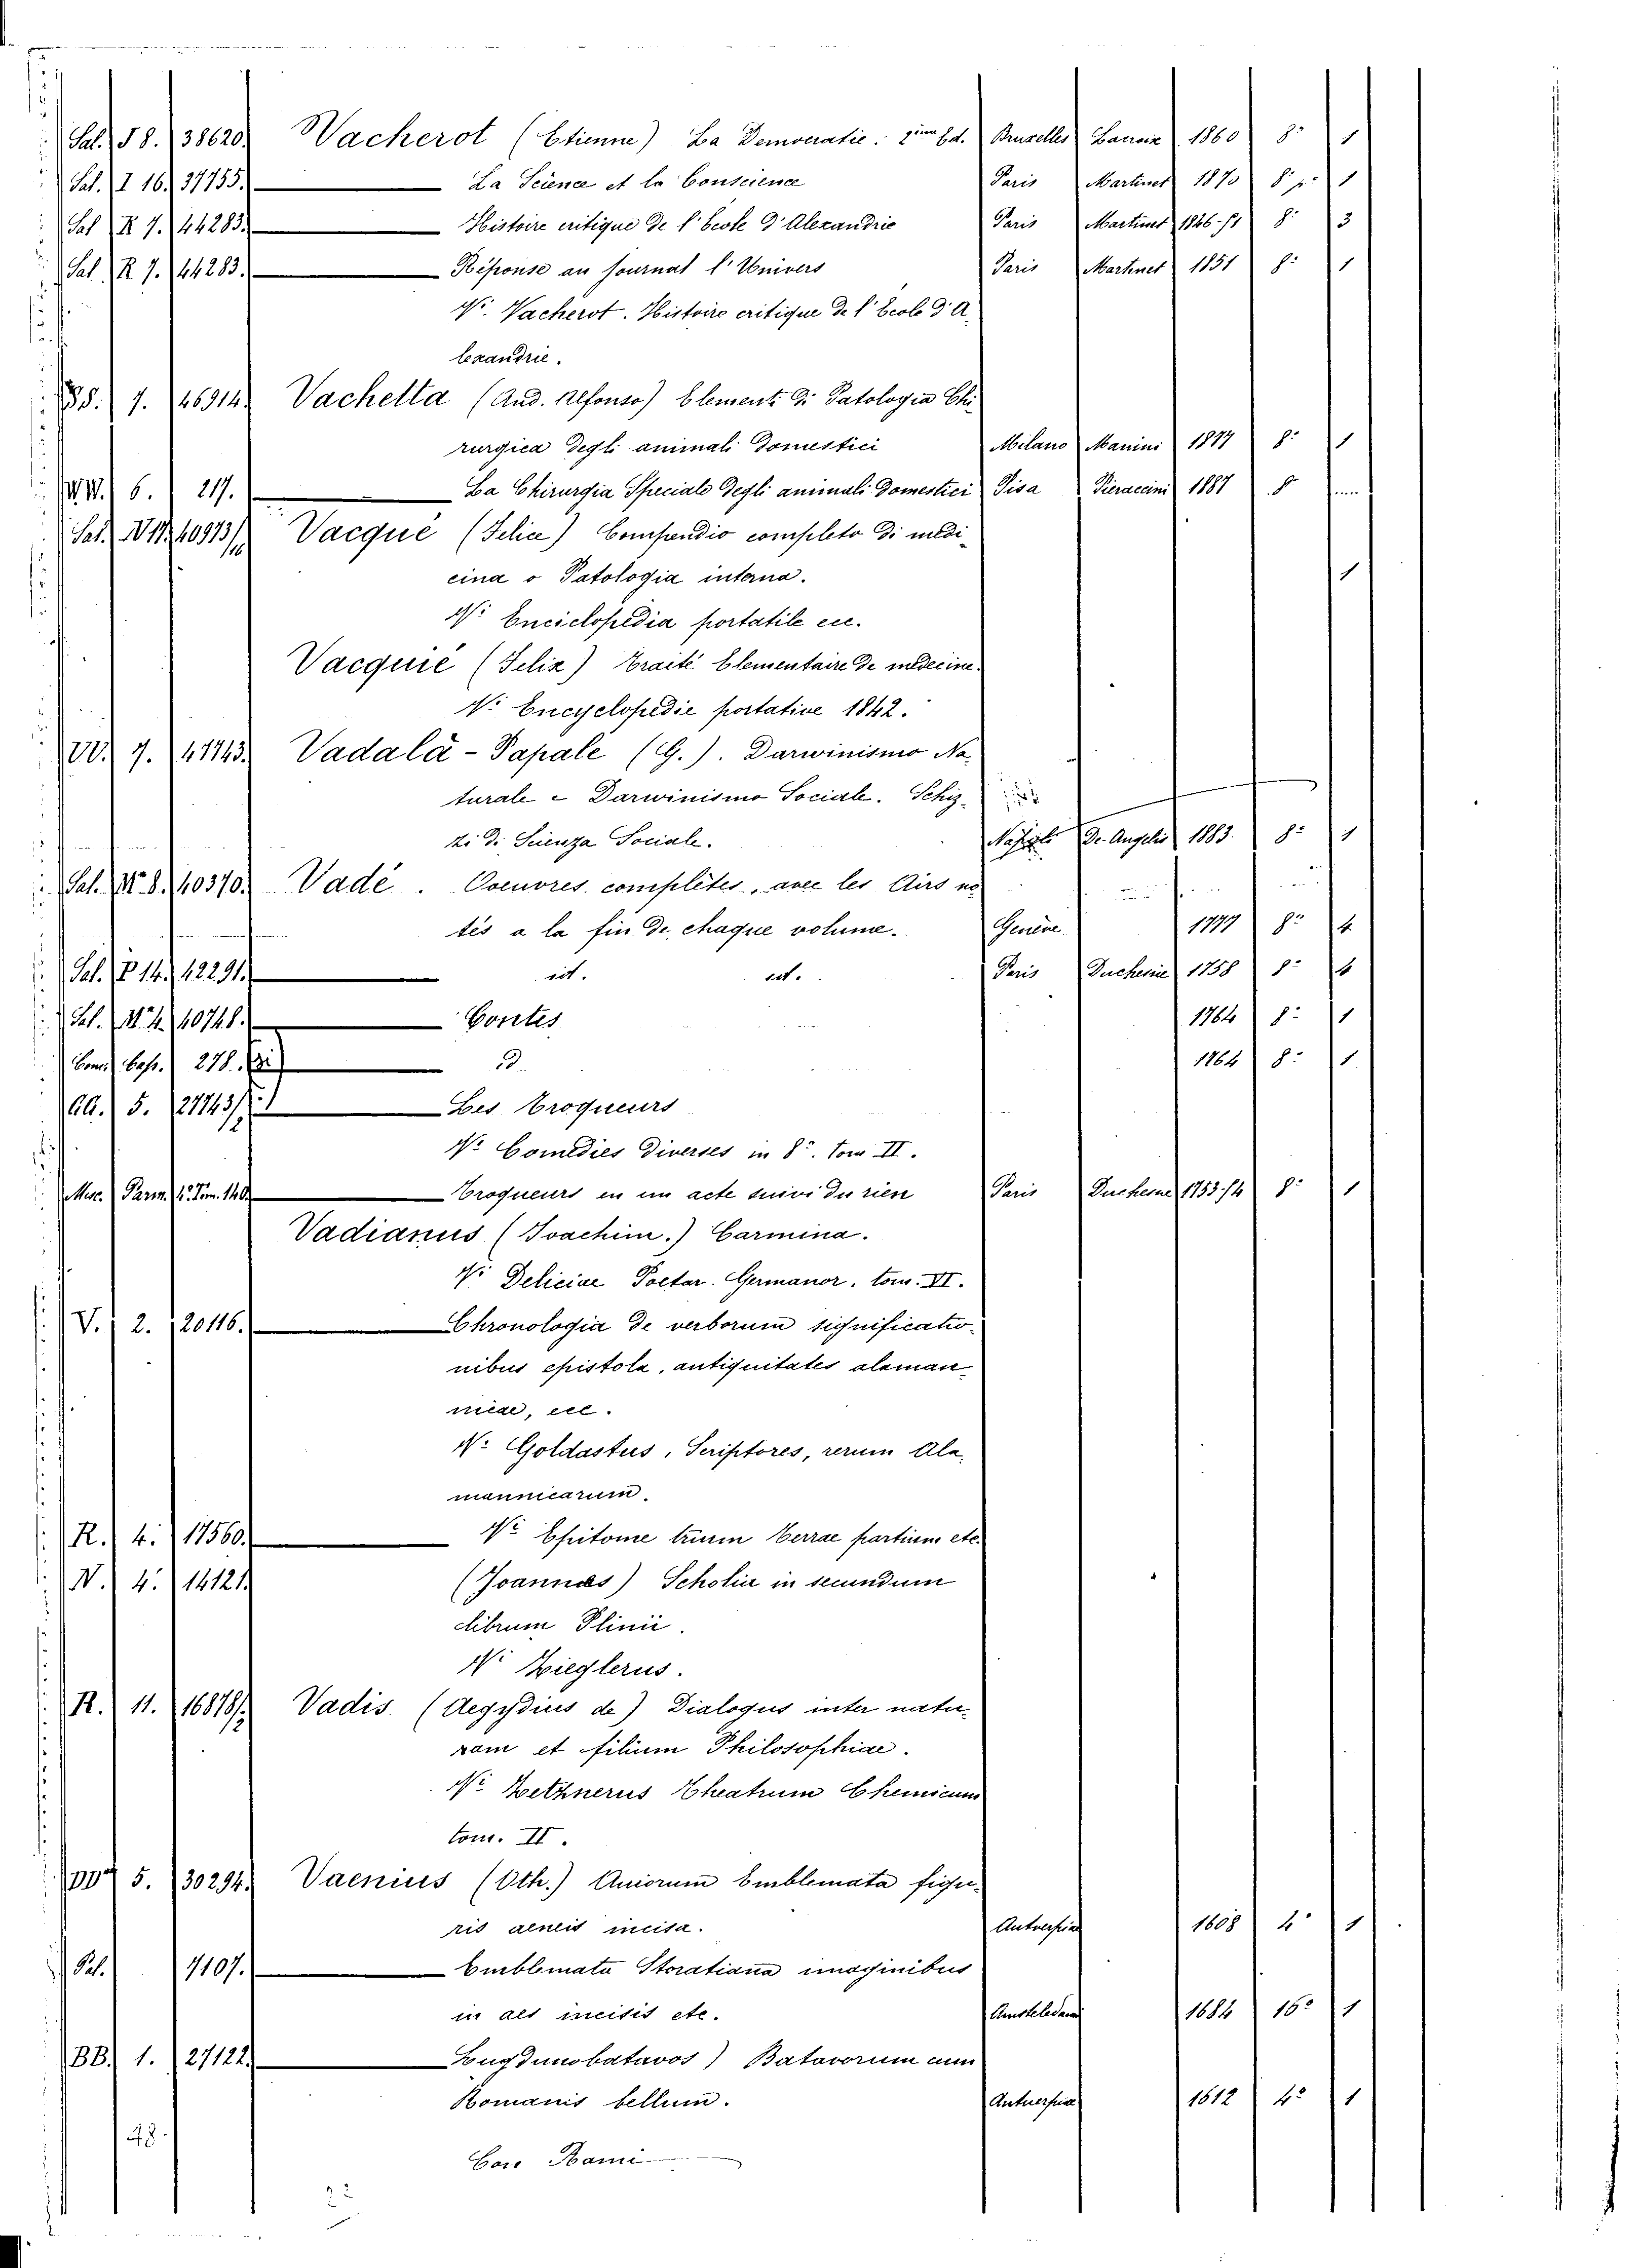 Sal. S 8. 38620. Wacherot (Etienne) La Democratie: 2ème Ed. Bruxelles Lacroix 1860 8° 1
Sal. I 16. 37755. La Science et la Conscience Paris Martinet 1870 8° p. 1
Sal R 7. 44283. Histoire critique de l'Ecole d'Alexandrie Paris Martinet 1846-51 8° 3
Sal. R 7. 44283. Réponse au Journal l'Univers Paris Martinet 1851 8° 1
V. Vacherot. Histoire critique de l'Ecole d'A
lexandrie.
7. 46914. Vachetta (And. Alfonso) Elementi di Patologia Chi
rurgica degli animali domestici Milano Manini 1877 8° 1
6. 217. La Chirurgia Speciale degli animali domestici Pisa Pieraccini 1887 8°
Sal. 40973/ Vacqué (Felice) Compendio completo di medi
cina o Patologia interna. 1
V: Enciclopedia portatile ecc.
Vacquié (Felix) Traité Elementaire de medecine.
V: Encyclopedie portative 1842.
VV. 7. 41743. Vadalà-Papale (G.). Darwinismo Na
turale e Darwinismo Sociale. Schiz
zi di Scienza Sociale. Napoli De Angelis 1883. 8° 1
Sal. N 8. 40370. Vadé. Oeuvres complètes, avec les Airs no
tés a la fin de chaque volume. Genève 1777 8° 4
Sal. P 14. 42291. id. id. Paris Duchesne 1758 8° 4
Sal. M 4. 40748. Contes 1764 8° 1
278. D 1764 8° 1
AA. 5. 27743/ Les Troqueurs
V: Comédies diverses in 8°. tom II.
Parm. 140 Troqueurs en un acte suivi du rien Paris Duchesne 1753-54 8° 1
Vadianus (Joachim.) Carmina.
V: Deliciae Poetar. Germanor, tom. VI.
V. 2. 20116. Chronologia de verborum significatio
nibus epistola, antiquitates aleman
niae, ecc.
V: Goldastus, Scriptores, rerum Ala
mannicarum.
R. 4. 17560. V: Epitome trium Terrae partium etc.
N. 4. 14121. (Joannes) Scholia in secundum
librum Plinii.
V: Zieglerus.
R. 11. 16878/ Vadis. (Aegydius de) Dialogus inter natu
ram et filium Philosophiae.
V: Zethnerus Theatrum Chemicum
tom. II.
5. 30294. Vaenius (Oth.) Amorum Emblemata figu
ris aeneis incisa. Antverpiae 1608 4° 1
Pal. 7107. Emblemata Horatiana imaginibus
in aes incisis etc. Amstelodami 1684 16° 1
BB. 1. 27122. Lugdunobatavos) Batavorum cum
Romanis bellum. Antverpiae 1612 4° 1
48.